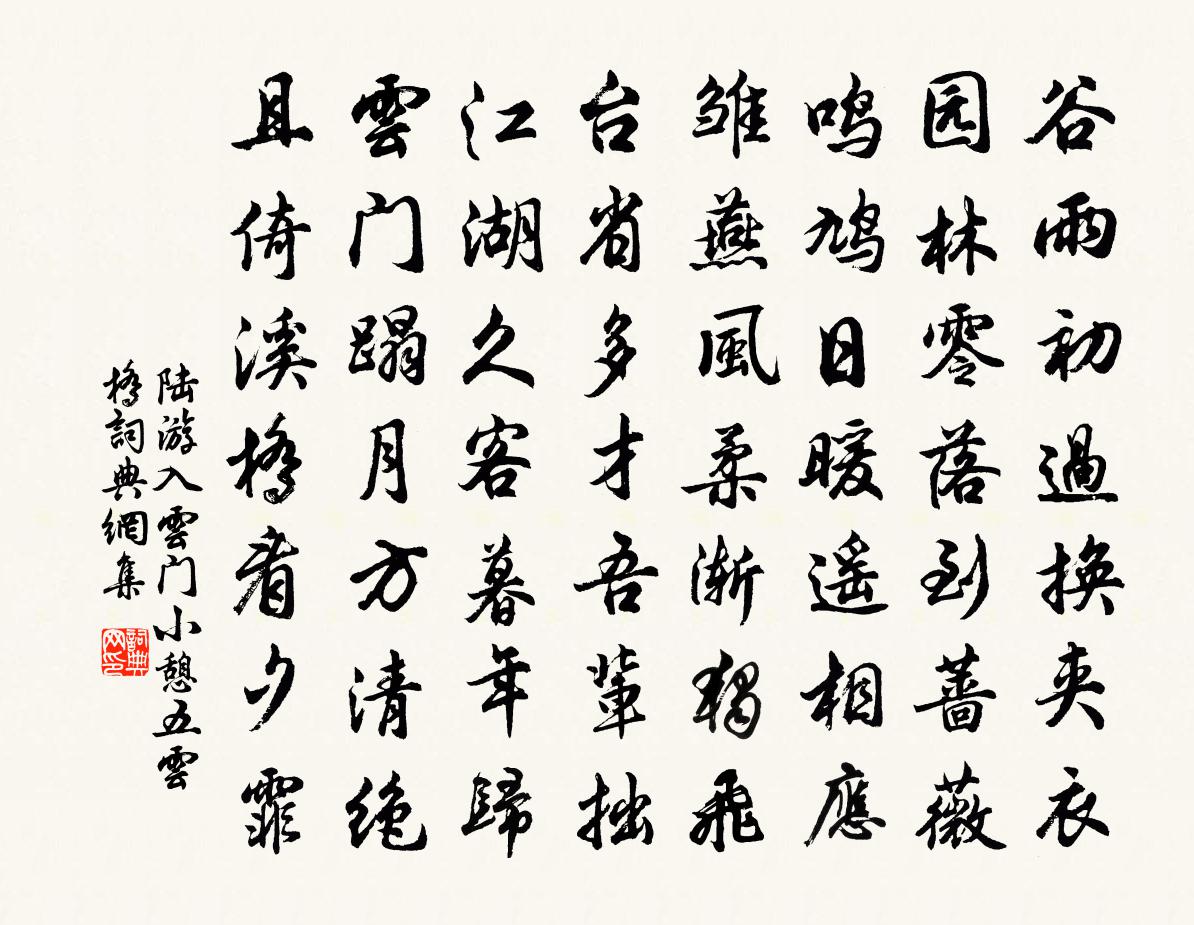 谷雨初過換夹衣
园林零落到蔷薇
鸣鸠日暖遥相應
雏燕風柔渐独飛
台省多才吾辈拙
江湖久客暮年歸
雲门蹋月方清绝
且倚溪橋看夕霏
陆游入雲门小憩五雲
橋詞典網集
詞典
网印